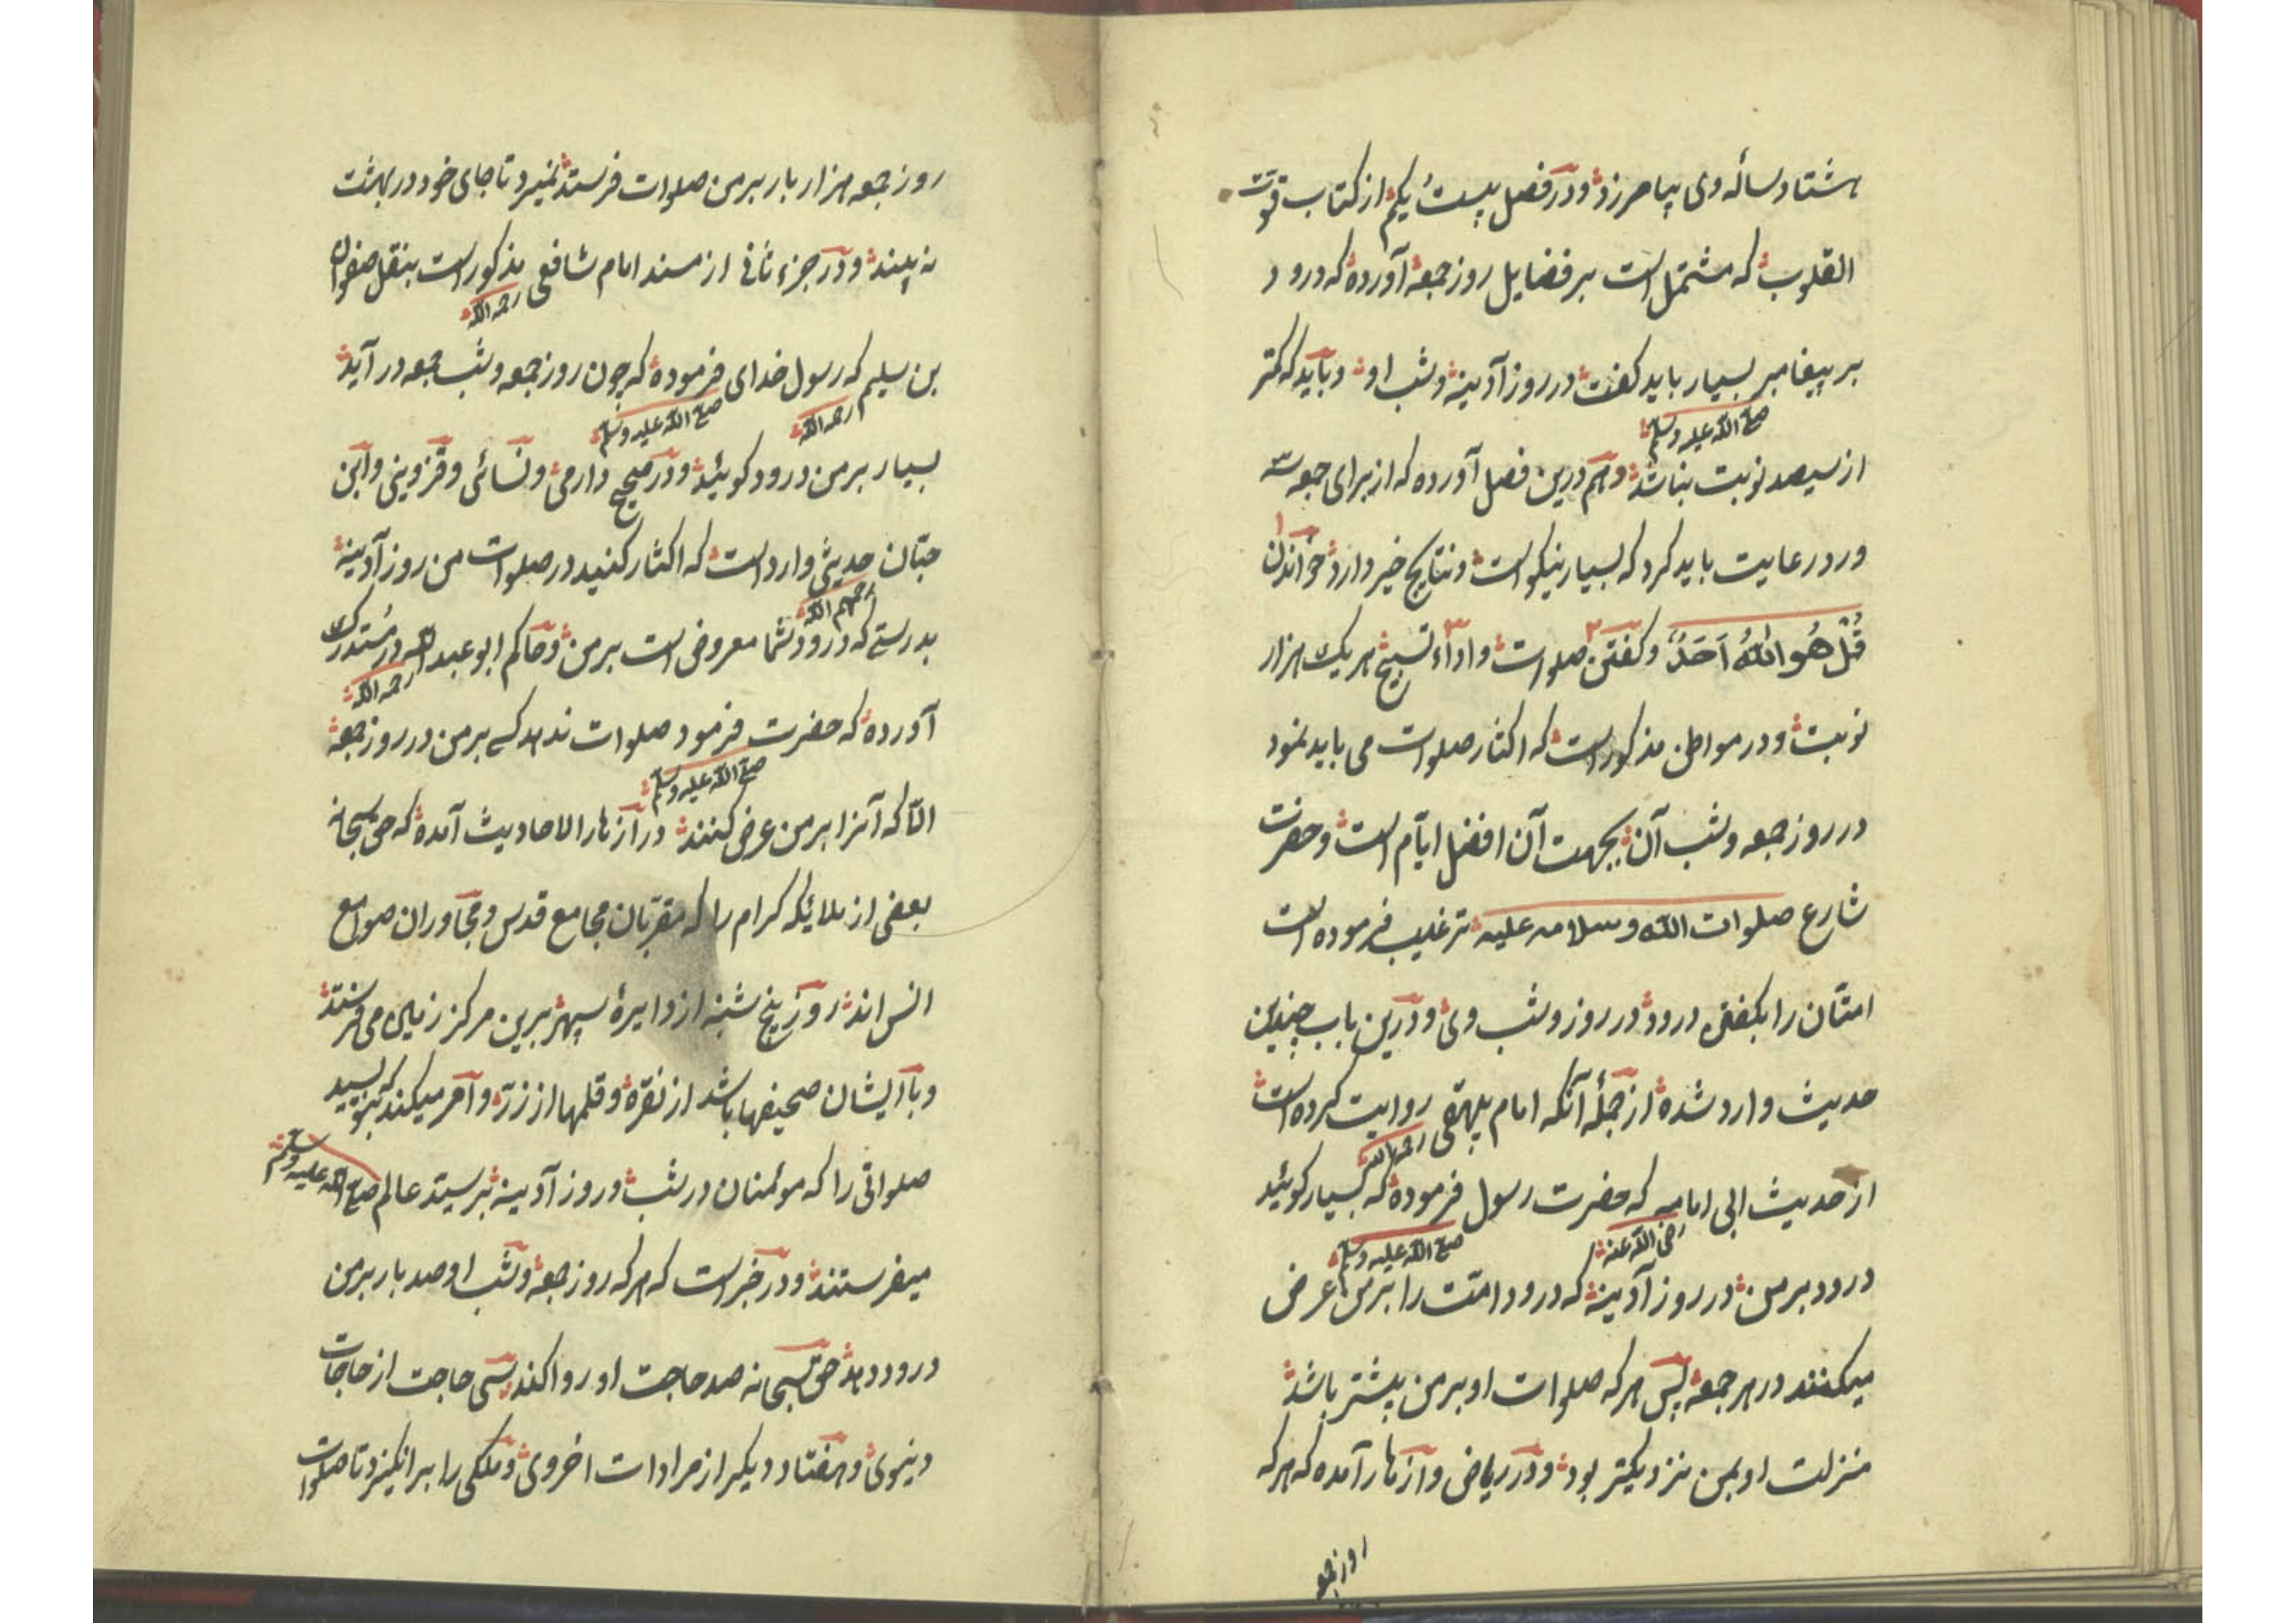 هشتاد ساله وی بیامرزد و در فصل بیست یکم از کتاب قوت
القلوب که مشتمل است بر فضایل روز جمعه آورده که درود
بر پیغامبر بسیار باید کفت در روز آدینه و شب او و باید که کمتر
صلی الله علیه وسلم
از سیصد نوبت نباشد و هم درین فصل آورده که از برای جمعه سه
ورد رعایت باید کرد که بسیار نیکو است و نتایج خیر دارد خواندن
قُلْ هُوَ اللّٰهُ اَحَدٌ و کفتن صلوات و اداء تسبیح هر یک هزار
نوبت و در مواطن مذکور است که اکثار صلوات می باید نمود
در روز جمعه و شب آن بجهت آن افضل ایّام است و حضرت
شارع صلوات الله وسلامه علیه ترغیب فرموده است
امتان را بکفتن درود در روز و شب وی و درین باب چندین
حدیث وارد شده از جمله آنکه امام بیهقی روایت کرده است
رحمه الله
از حدیث ابی امامه که حضرت رسول فرموده که بسیار کوئید
رضی الله عنه صلی الله علیه وسلم
درود بر من در روز آدینه که درود امّت را بر من عرض
میکنند در هر جمعه پس هر که صلوات او بر من بیشتر باشد
منزلت او بمن نزدیکتر بود و در ریاض و ازهار آمده که هر که
روز جمعه
روز جمعه هزار بار بر من صلوات فرستد نمیرد تا جای خود در بهشت
نه بیند و در جزء ثانی از مسند امام شافعی مذکور است بنقل صفوان
رحمه الله
بن سلیم که رسول خدای فرموده که چون روز جمعه و شب جمعه در آید
رحمه الله صلی الله علیه وسلم
بسیار بر من درود کوئید و در صحیح دارمی و نسائی و قزوینی و ابن
حبّان حدیثی وارد است که اکثار کنید در صلوات من روز آدینه
رحمهم الله
بدرستے که درود شما معروض است بر من و حاکم ابو عبد الله در مُستدرک
رحمه الله
آورده که حضرت فرمود صلوات ندهد کسے بر من در روز جمعه
صلی الله علیه وسلم
الّا که آنرا بر من عرض کنند در ازهار الاحادیث آمده که حق سبحانه
بعضی از ملایکه کرام را که مقربان مجامع قدس و مجاوران صوامع
انس اند روز پنج شنبه از دایرهٔ سپهر برین مرکز زمین می فرستد
و با ایشان صحیفها باشد از نقره و قلمها از زر و امر میکند که بنویسید
صلواتی را که موئمنان در شب و روز آدینه بر سید عالم صلی الله علیه وسلم
میفرستند و در خبر است که هر که روز جمعه و شب او صد بار بر من
درود دهد حق سبحانه صد حاجت او روا کند سی حاجت از حاجات
دنیوی و هفتاد دیکر از مرادات اخروی و ملکی را بر انکیزد تا صلوات